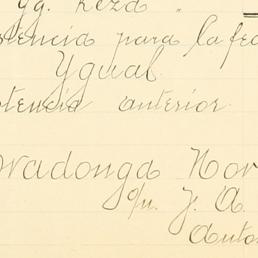 Yg. Reza "
stencia para la fec
Ygual
stencia anterior
vadonga Nor
p/u. J. A.
Anto